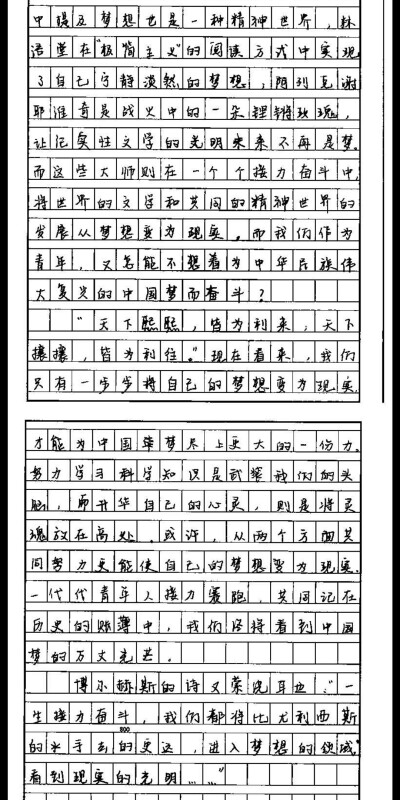 中提及梦想也是一种精神世界，林
语堂在“极简主义”的阅读方式中实现
了自己宁静淡然的梦想，阿列克谢
耶维奇是战火中的一朵铿锵玫瑰，
让记实性文学的光明未来不再是梦。
而这些大师则在一个个接力奋斗中，
将世界的文学和共同的精神世界的
发展从梦想变为现实。而我们作为
青年，又怎能不想着为中华民族伟
大复兴的中国梦而奋斗？
“天下熙熙，皆为利来，天下
攘攘，皆为利往。”现在看来，我们
只有一步步将自己的梦想变为现实，
才能为中国梦尽上更大的一份力。
努力学习科学知识是武装我们的头
脑，而升华自己的心灵，则是将灵
魂放在高处。或许，从两个方面共
同努力更能使自己的梦想变为现实。
一代代青年人接力赛跑，共同记在
历史的账薄中，我们终将看到中国
梦的万丈光芒。
博尔赫斯的诗又萦绕耳边：“一
生接力奋斗，我们都将比尤利西斯
800
的水手去的更远，进入梦想的领域，
看到现实的光明……”